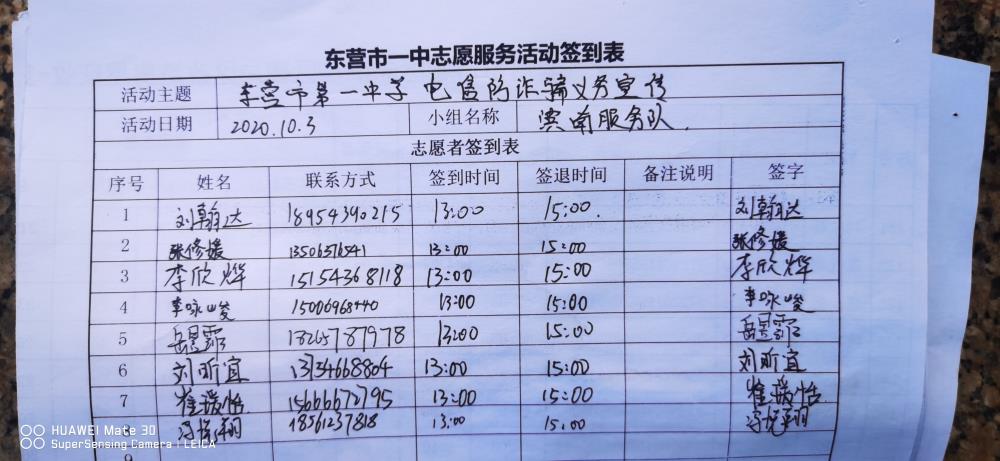 东营市一中志愿服务活动签到表
活动主题 东营市第一中学电信防诈骗义务宣传
活动日期 2020.10.3 小组名称 滨南服务队
志愿者签到表
序号 姓名 联系方式 签到时间 签退时间 备注说明 签字
1 刘翰达 18954390215 13:00 15:00 刘翰达
2 张修媛 13506376541 13:00 15:00 张修媛
3 李欣烨 15154368118 13:00 15:00 李欣烨
4 李咏峻 15006968440 13:00 15:00 李咏峻
5 13:00 15:00
6 刘昕宜 13734668804 13:00 15:00 刘昕宜
7 崔瑗怡 15666672795 13:00 15:00 崔瑗怡
18561237818 13:00 15:00
9
HUAWEI Mate 30
SuperSensing Camera | LEICA